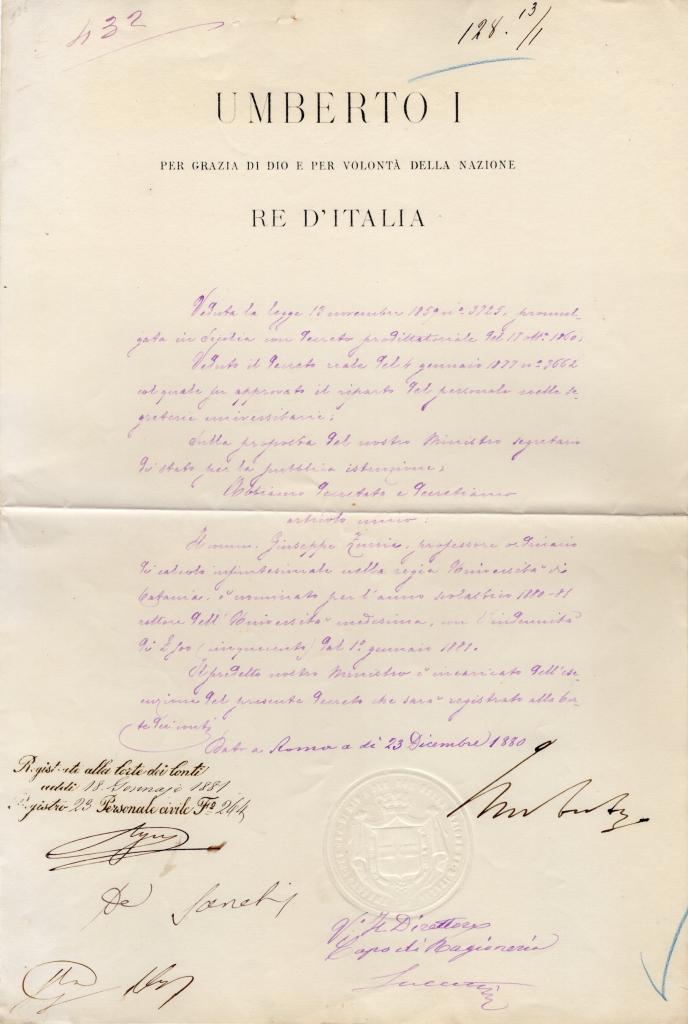 432
128. 13/1
UMBERTO I
PER GRAZIA DI DIO E PER VOLONTÀ DELLA NAZIONE
RE D'ITALIA
Veduta la legge 13 novembre 1859 nº 3725, promul-
gata in Sicilia con decreto prodittatoriale del 17 ott.e 1860,
Veduto il decreto reale del 4 gennaio 1877 nº 3662
col quale fu approvato il riparto del personale nelle se-
greterie universitarie;
Sulla proposta del nostro Ministro segretario
di stato per la pubblica istruzione;
Abbiamo decretato e decretiamo
articolo unico:
Il comm. Giuseppe Zurria, professore ordinario
di calcolo infinitesimale nella regia Università di
Catania, è nominato per l'anno scolastico 1880-81
rettore dell'Università medesima, con l'indennità
di £ 500 (cinquecento) dal 1º gennaio 1881.
Il predetto nostro Ministro è incaricato dell'ese-
cuzione del presente decreto che sarà registrato alla Cor-
te dei conti
Dato a Roma a dì 23 Dicembre 1880
Umberto
Registrato alla Corte dei Conti
addì 18 Gennajo 1881
Registro 23 Personale civile Fº 264
De Sanctis
Vº Il Direttore
Capo di Ragioneria